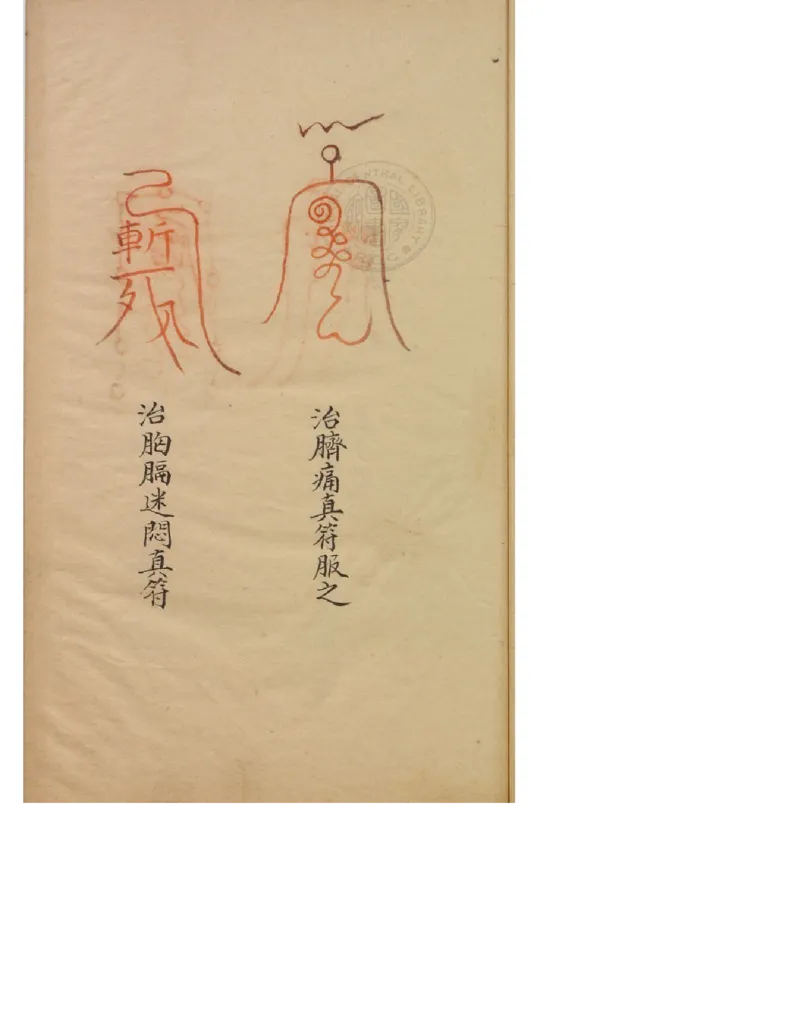 治臍痛真符服之
斬
治胸膈迷悶真符
CENTRAL LIBRARY